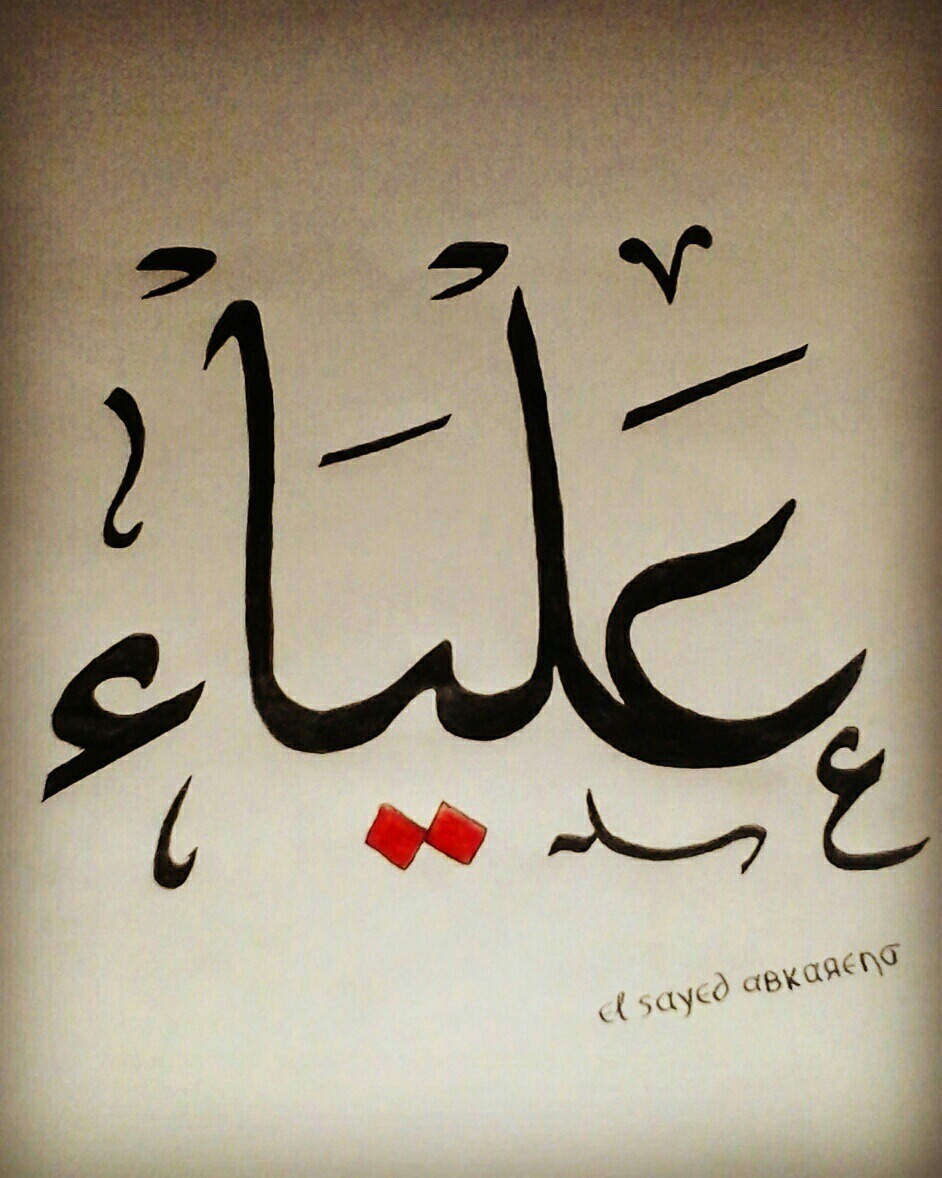 عَلْيَاء
el sayed abkareno